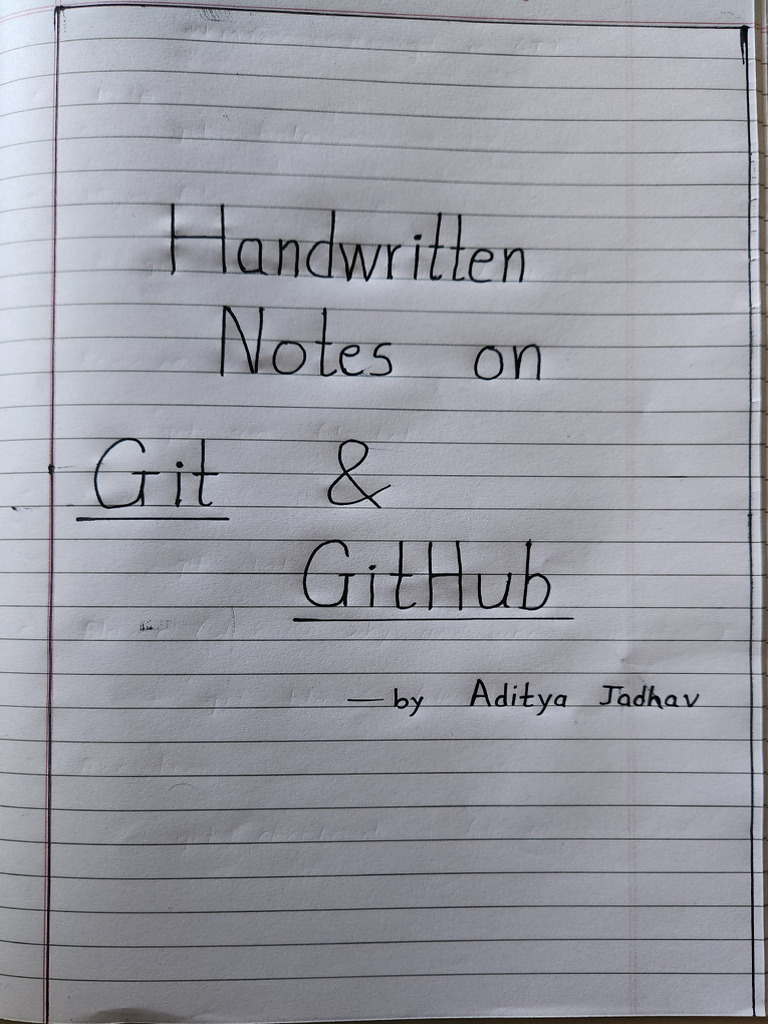 Handwritten
Notes on
Git &
GitHub
— by Aditya Jadhav